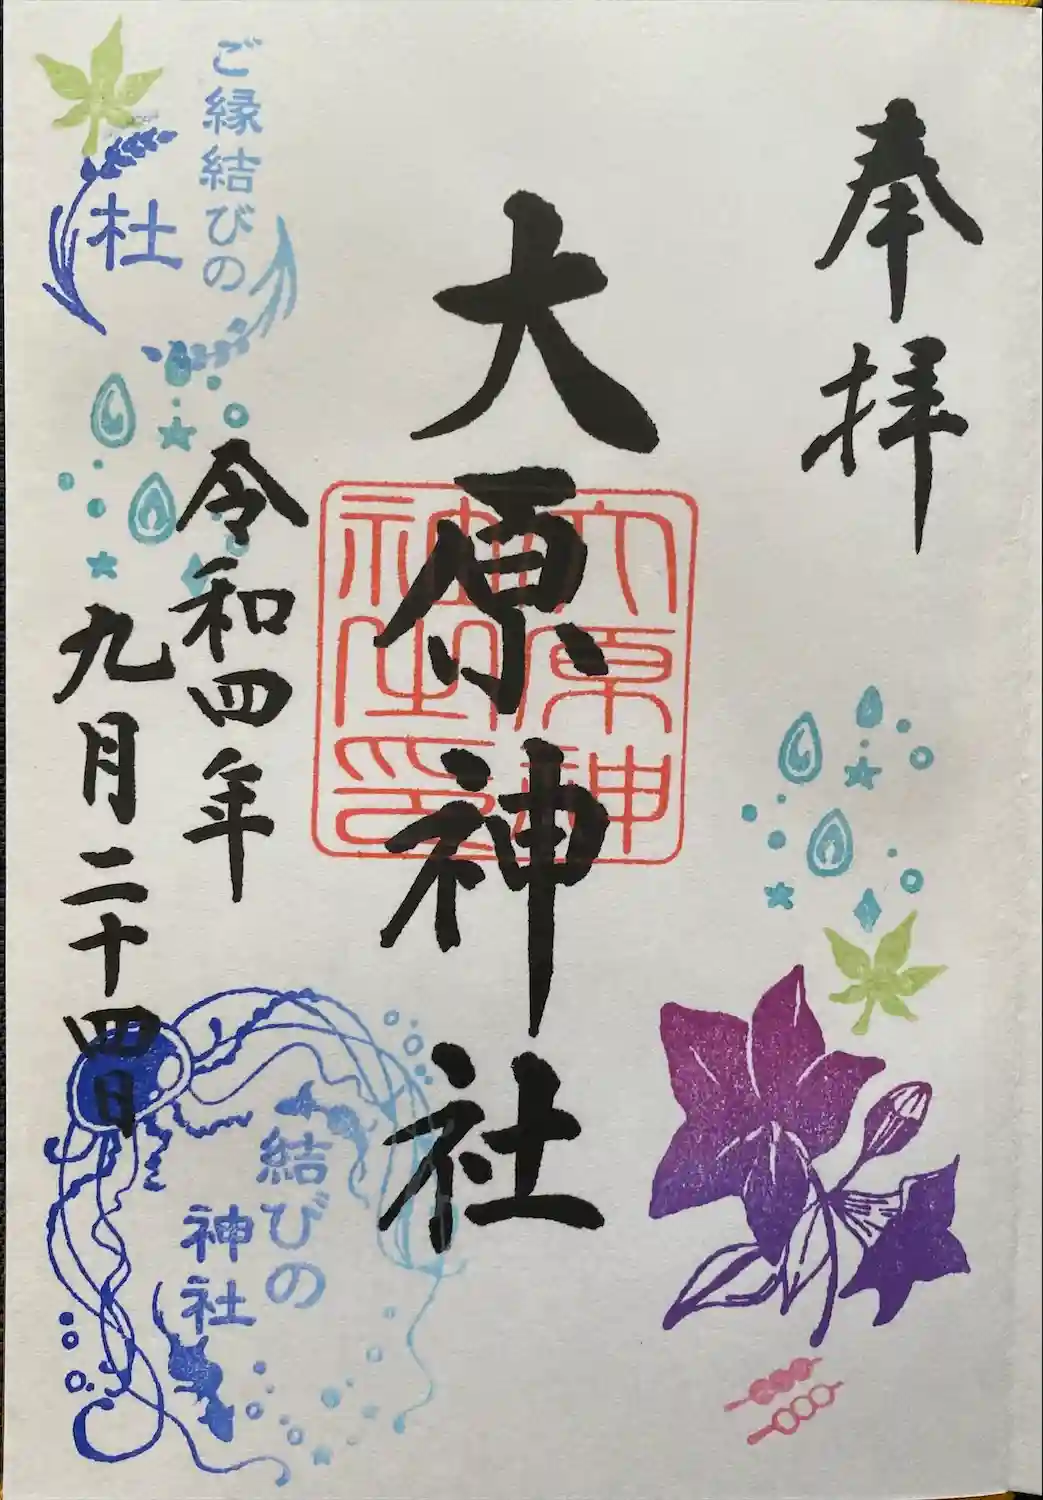 奉拝
大原神社
大原神
社印
令和四年
九月二十四日
ご縁結びの
杜
結びの
神社